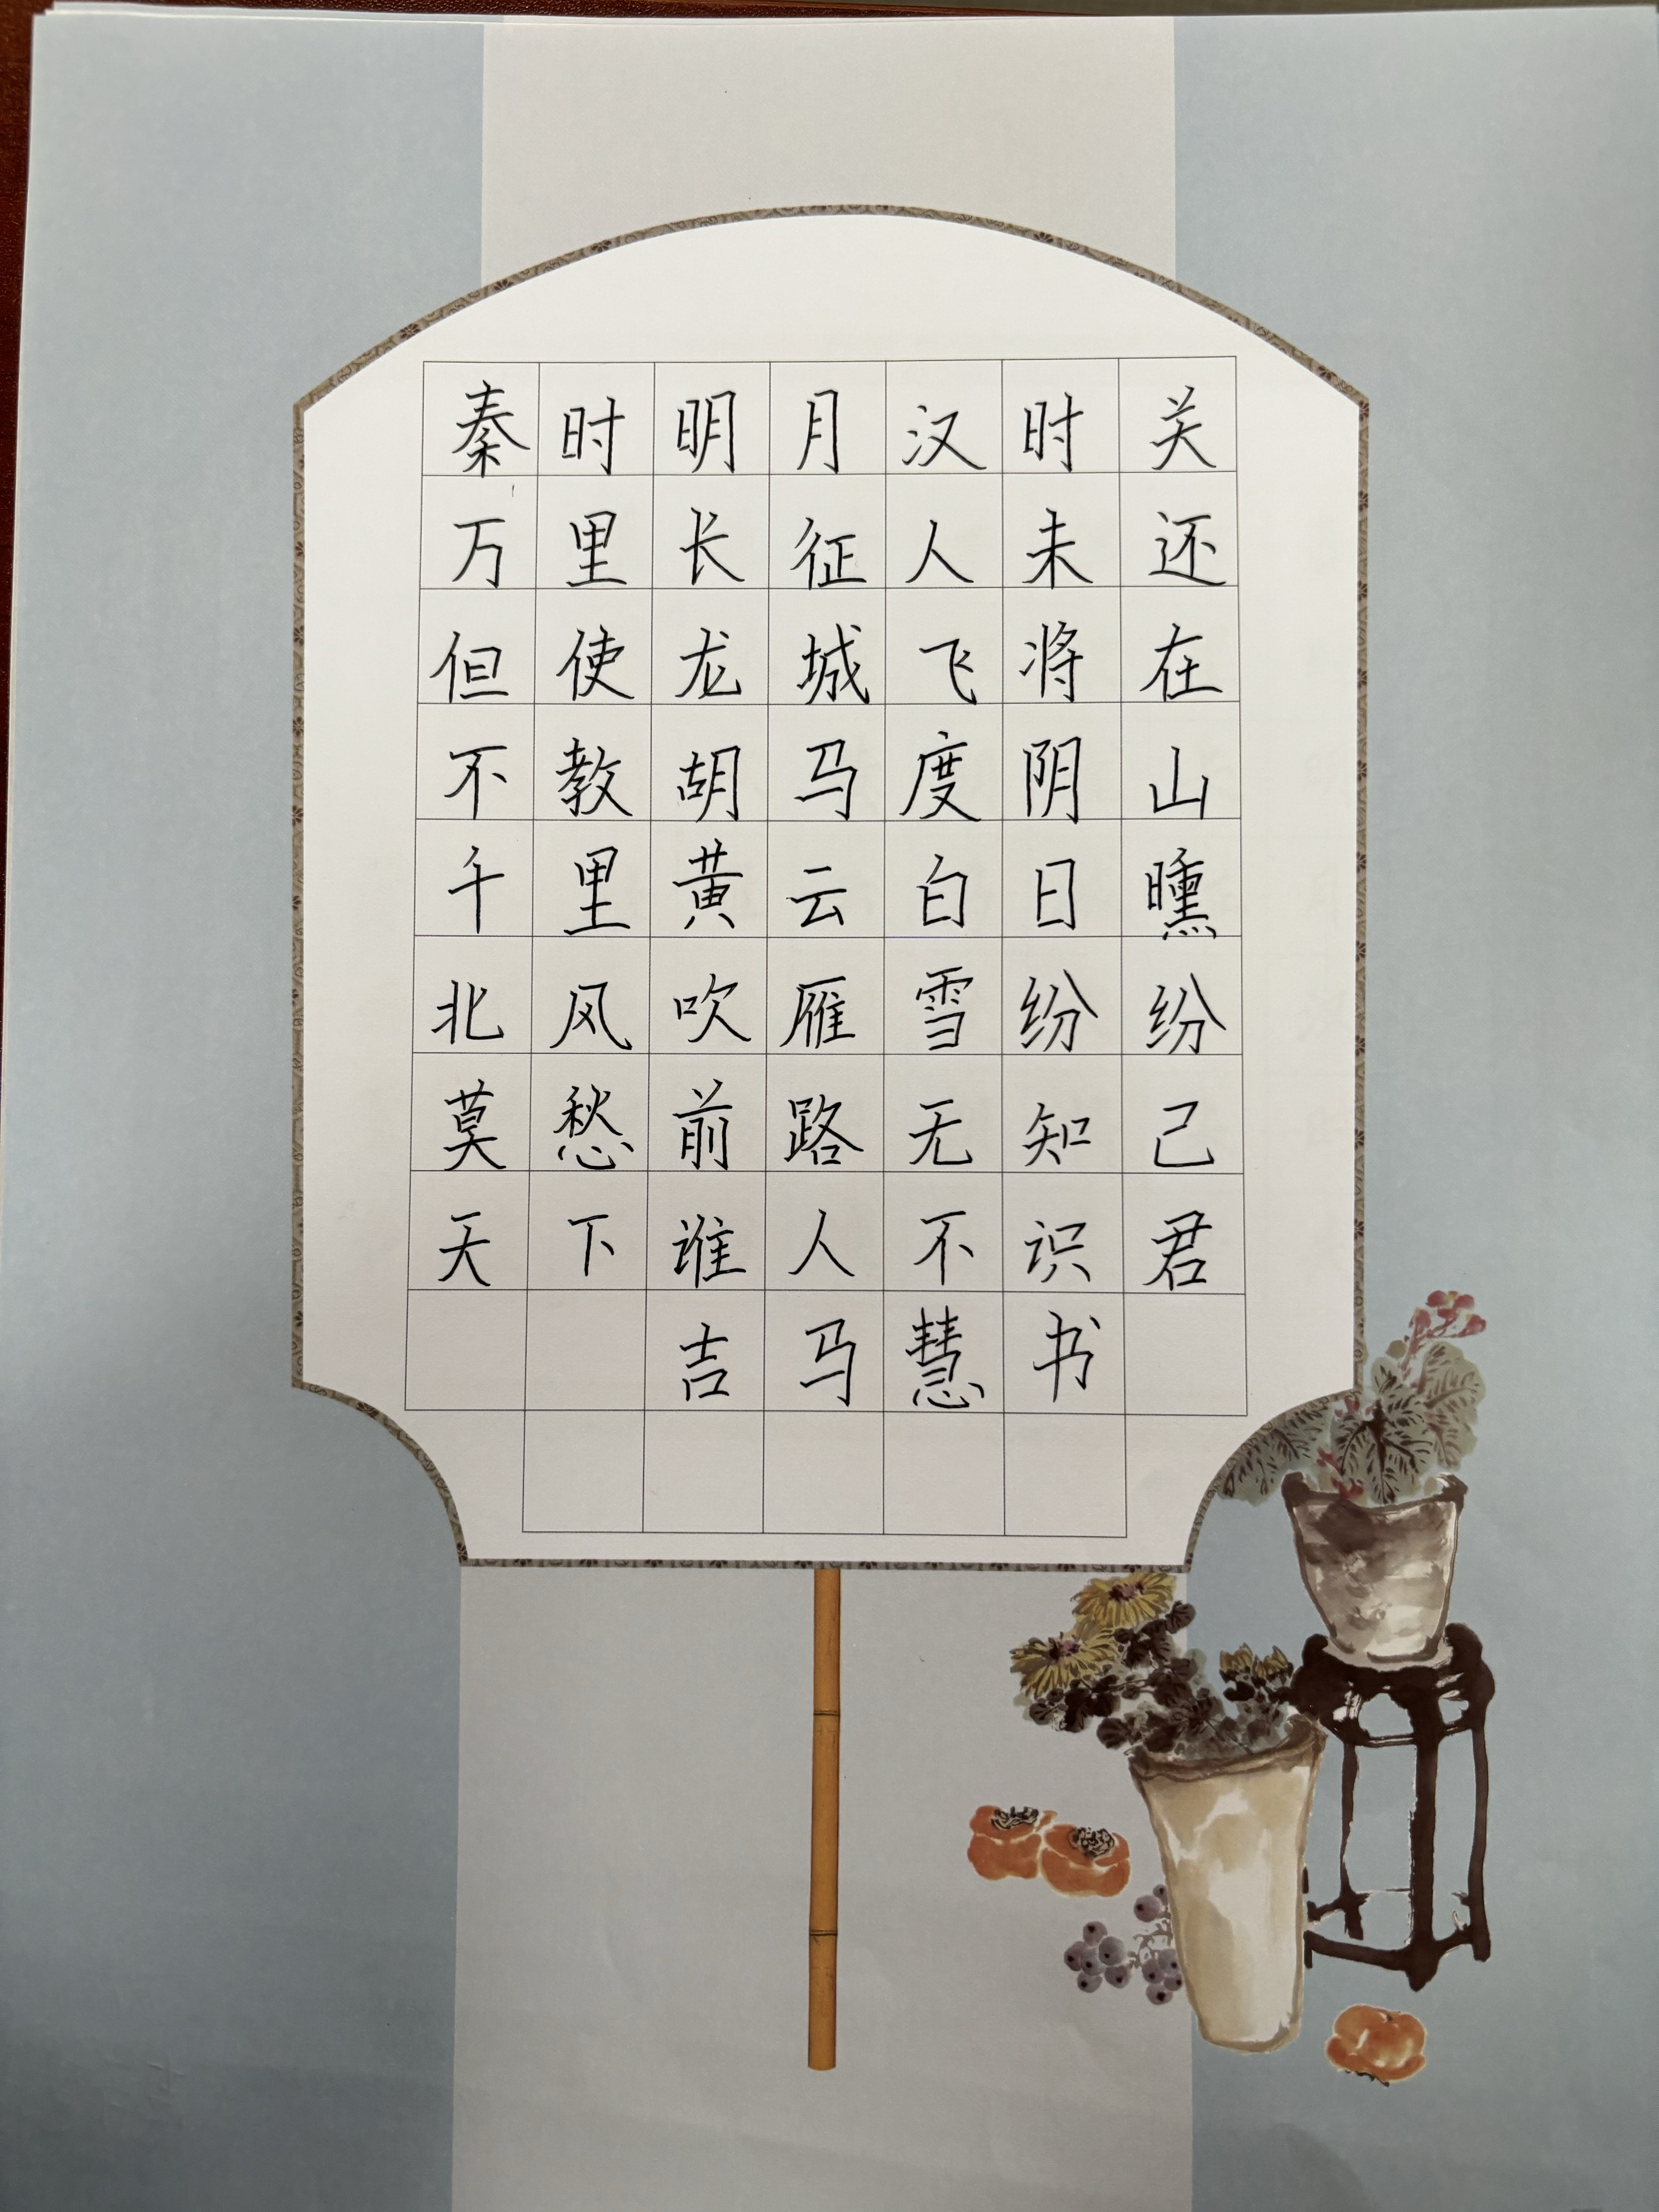 秦时明月汉时关
万里长征人未还
但使龙城飞将在
不教胡马度阴山
千里黄云白日曛
北风吹雁雪纷纷
莫愁前路无知己
天下谁人不识君
吉马慧书